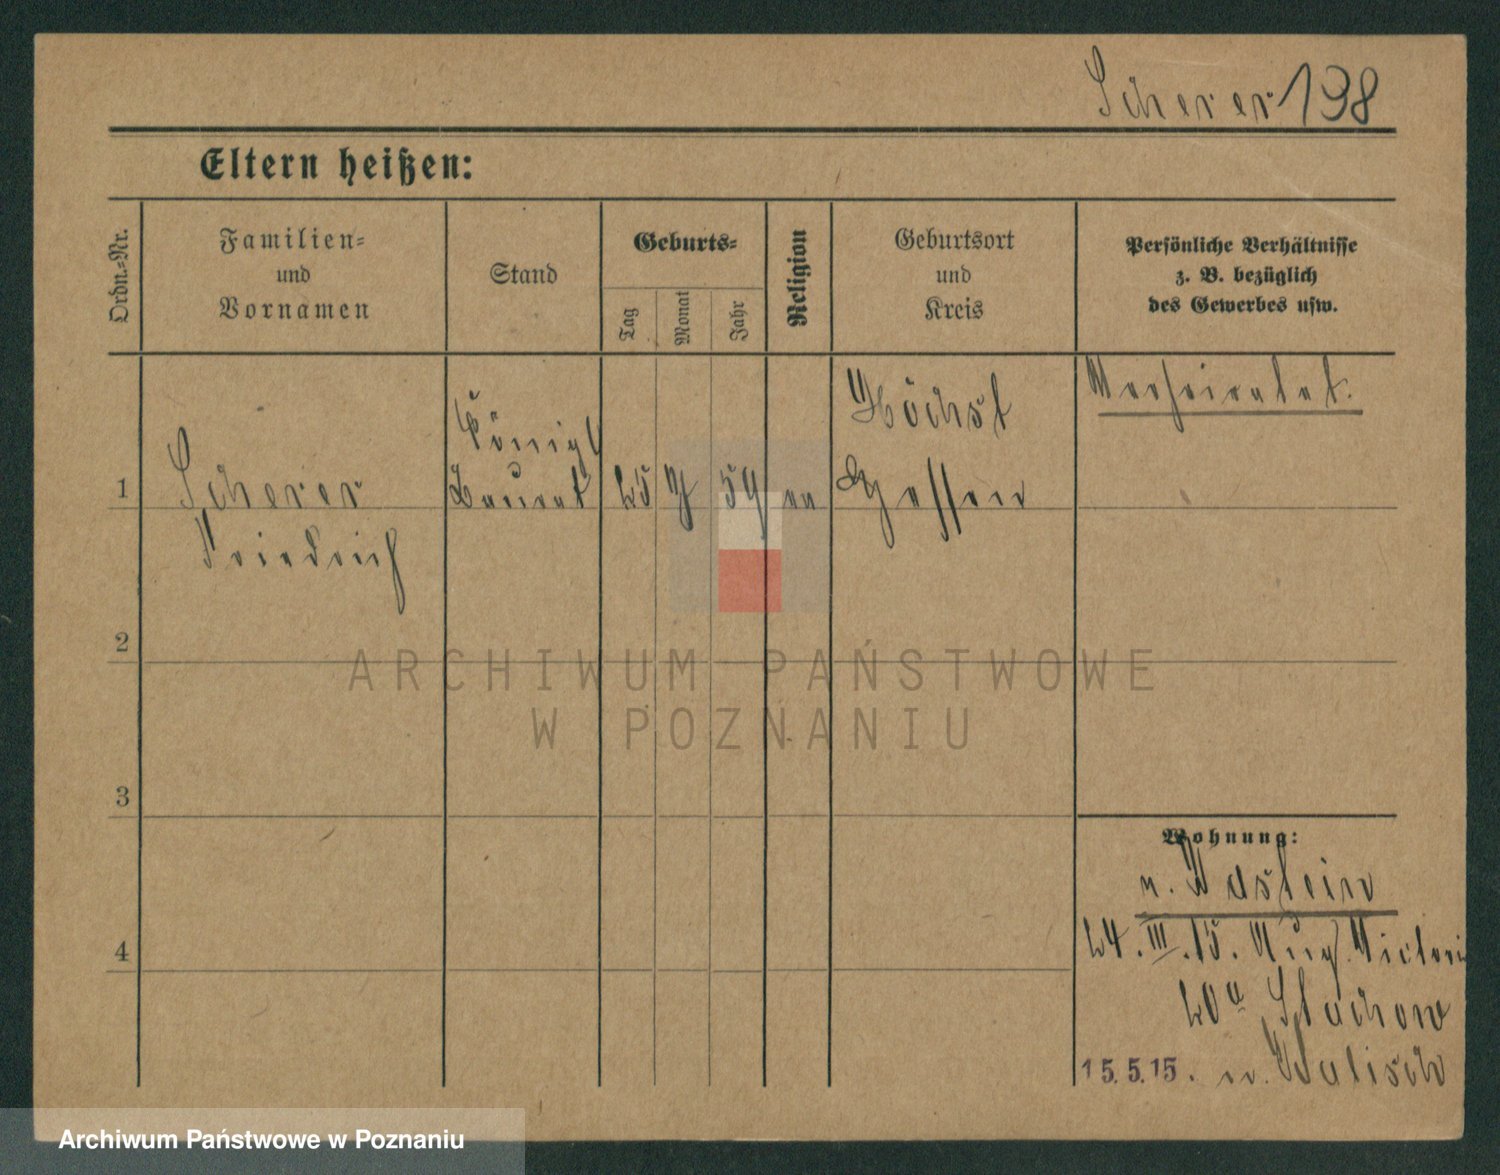 Scherer 198
Eltern heißen:
Ordn.=Nr.
Familien=
und
Vornamen
Stand
Geburts=
Tag
Monat
Jahr
Religion
Geburtsort
und
Kreis
Persönliche Verhältnisse
z. B. bezüglich
des Gewerbes usw.
Verheiratet.
1
Scherer
Friedrich
Königl
Baurat
25
59
Höchst
Hessen
2
3
4
Wohnung:
24. III. 15. Aug. Victoria
20a Stachow
15.5.15. n.
ARCHIWUM PAŃSTWOWE
W POZNANIU
Archiwum Państwowe w Poznaniu